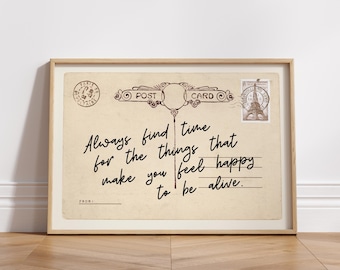 POST CARD
Always find time
for the things that
make you feel happy
to be alive.